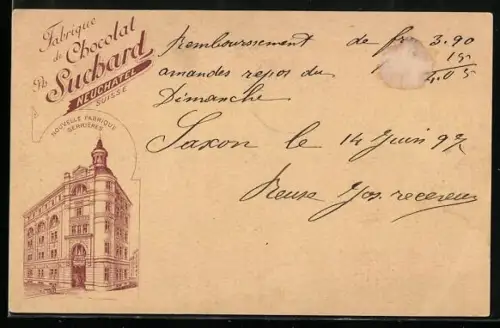 Fabrique
de Chocolat
Ph. Suchard
NEUCHATEL
SUISSE
NOUVELLE FABRIQUE
SERRIÈRES
Remboursement de frs 3.90
15
4.05
amandes repos du
Dimanche
Saxon le 14 Juin 97
Reuse Jos. receveur